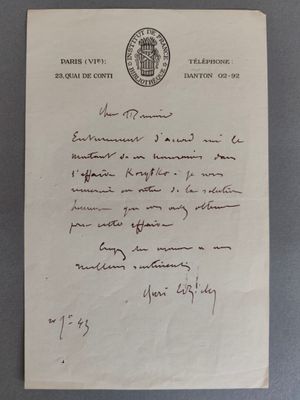 PARIS (VIe):
23, QUAI DE CONTI
INSTITUT DE FRANCE
BIBLIOTHÈQUE
TÉLÉPHONE:
DANTON 02-92
Cher Monsieur
Entièrement d'accord sur le
montant de vos honoraires dans
l'affaire je vous
remercie en outre de la solution
heureuse que vous avez obtenue
pour cette affaire
Croyez Monsieur à mes
meilleurs sentiments
43